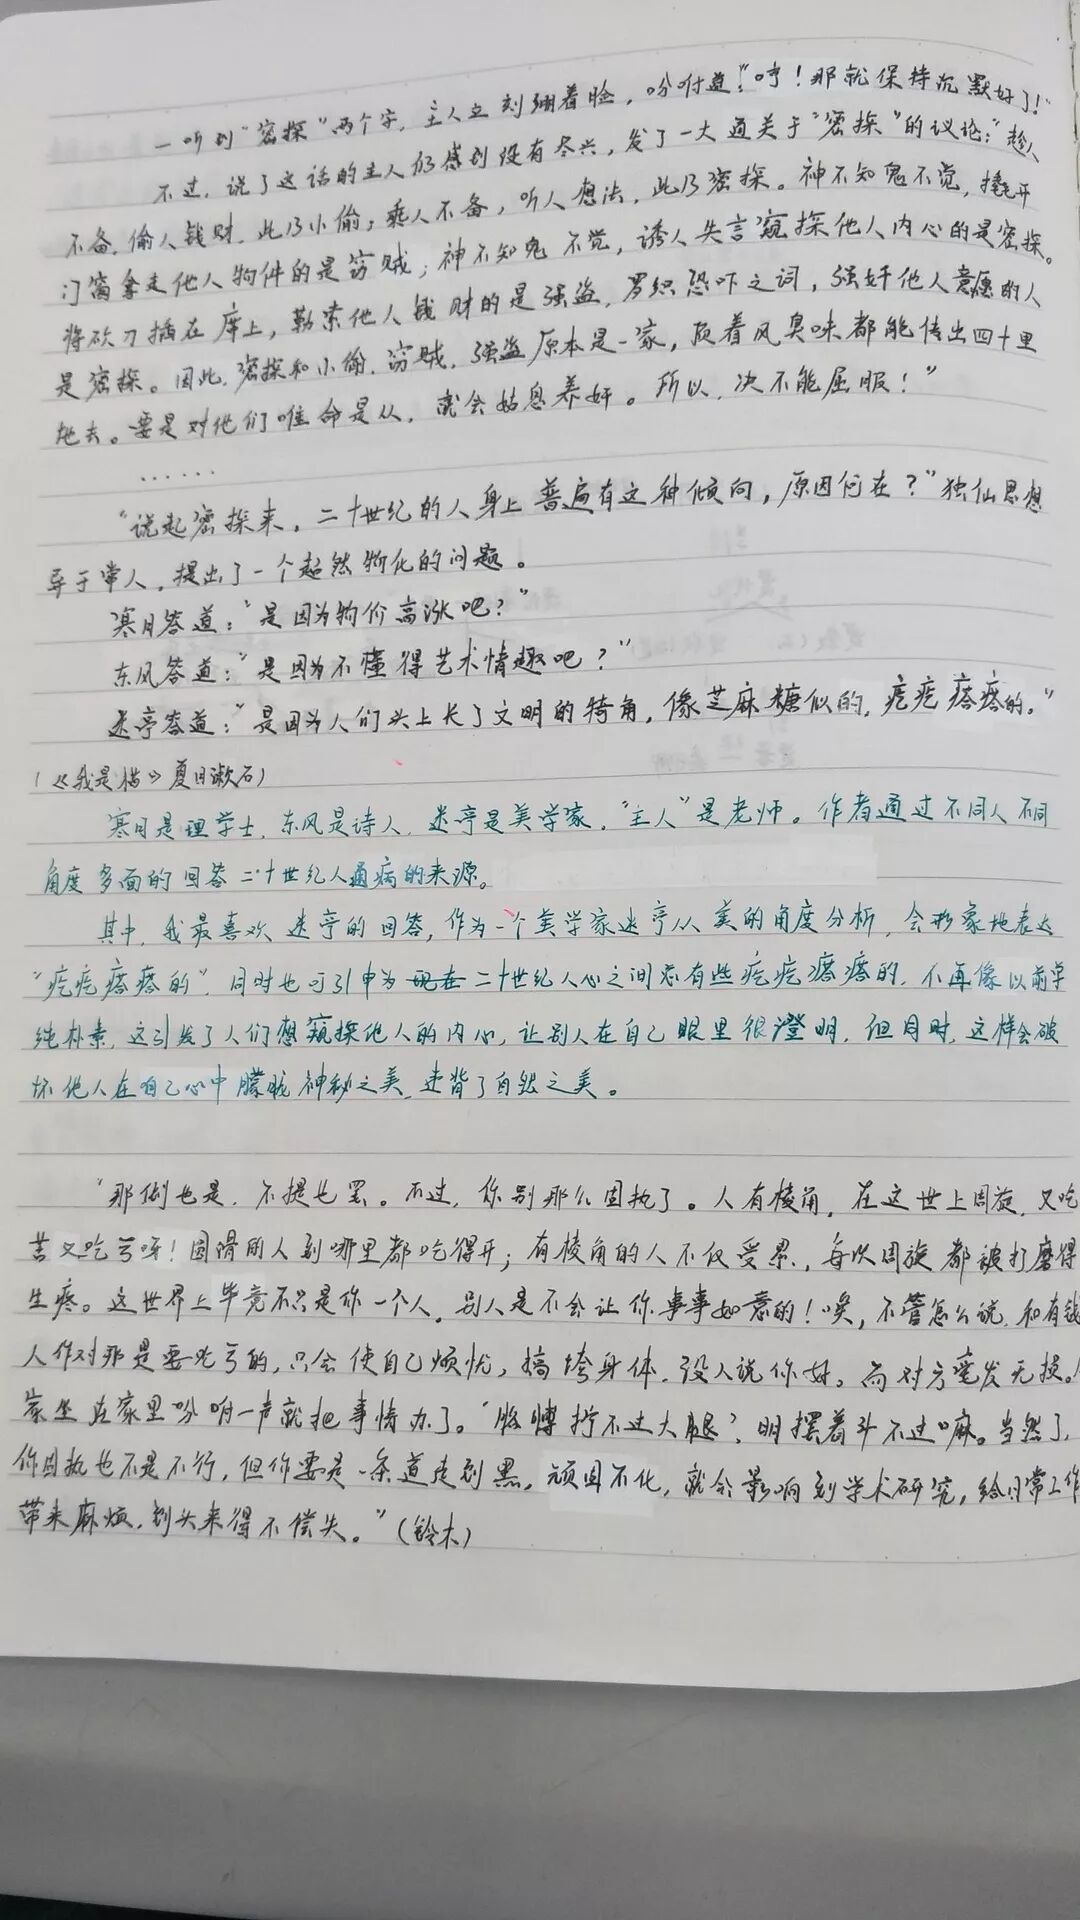 一听到“密探”两个字，主人立刻绷着脸，吩咐道：“哼！那就保持沉默好了！”
不过，说了这话的主人仍感到没有尽兴，发了一大通关于“密探”的议论：“趁人
不备，偷人钱财，此乃小偷；乘人不备，听人想法，此乃密探。神不知鬼不觉，撬开
门窗拿走他人物件的是窃贼；神不知鬼不觉，诱人失言窥探他人内心的是密探。
将砍刀插在席上，勒索他人钱财的是强盗，罗织恐吓之词，强奸他人意愿的人
是密探。因此，密探和小偷、窃贼、强盗原本是一家，顶着风臭味都能传出四十里
地去。要是对他们唯命是从，就会姑息养奸。所以，决不能屈服！”
……
“说起密探来，二十世纪的人身上普遍有这种倾向，原因何在？”独仙思想
异于常人，提出了一个超然物化的问题。
寒月答道：“是因为物价高涨吧？”
东风答道：“是因为不懂得艺术情趣吧？”
迷亭答道：“是因为人们头上长了文明的犄角，像芝麻糖似的，疙疙瘩瘩的。”
（《我是猫》夏目漱石）
寒月是理学士，东风是诗人，迷亭是美学家，“主人”是老师。作者通过不同人不同
角度多面的回答二十世纪人通病的来源。
其中，我最喜欢迷亭的回答，作为一个美学家迷亭从美的角度分析，会形象地表达
“疙疙瘩瘩的”，同时也可引申为现在二十世纪人心之间总有些疙疙瘩瘩的，不再像以前单
纯朴素，这引发了人们想窥探他人的内心，让别人在自己眼里很澄明，但同时，这样会破
坏他人在自己心中朦胧神秘之美，违背了自然之美。
“那倒也是，不提也罢。不过，你别那么固执了。人有棱角，在这世上周旋，又吃
苦又吃亏呀！圆滑的人到哪里都吃得开；有棱角的人不仅受累，每次周旋都被打磨得
生疼。这世界上毕竟不只是你一个人，别人是不会让你事事如意的！唉，不管怎么说，和有钱
人作对那是要吃亏的，只会使自己烦忧，搞垮身体，没人说你好。而对方毫发无损。人
家坐在家里吩咐一声就把事情办了。‘胳膊拧不过大腿’，明摆着斗不过嘛。当然了，
你固执也不是不行，但你要是一条道走到黑，顽固不化，就会影响到学术研究，给日常工作
带来麻烦，到头来得不偿失。”（铃木）